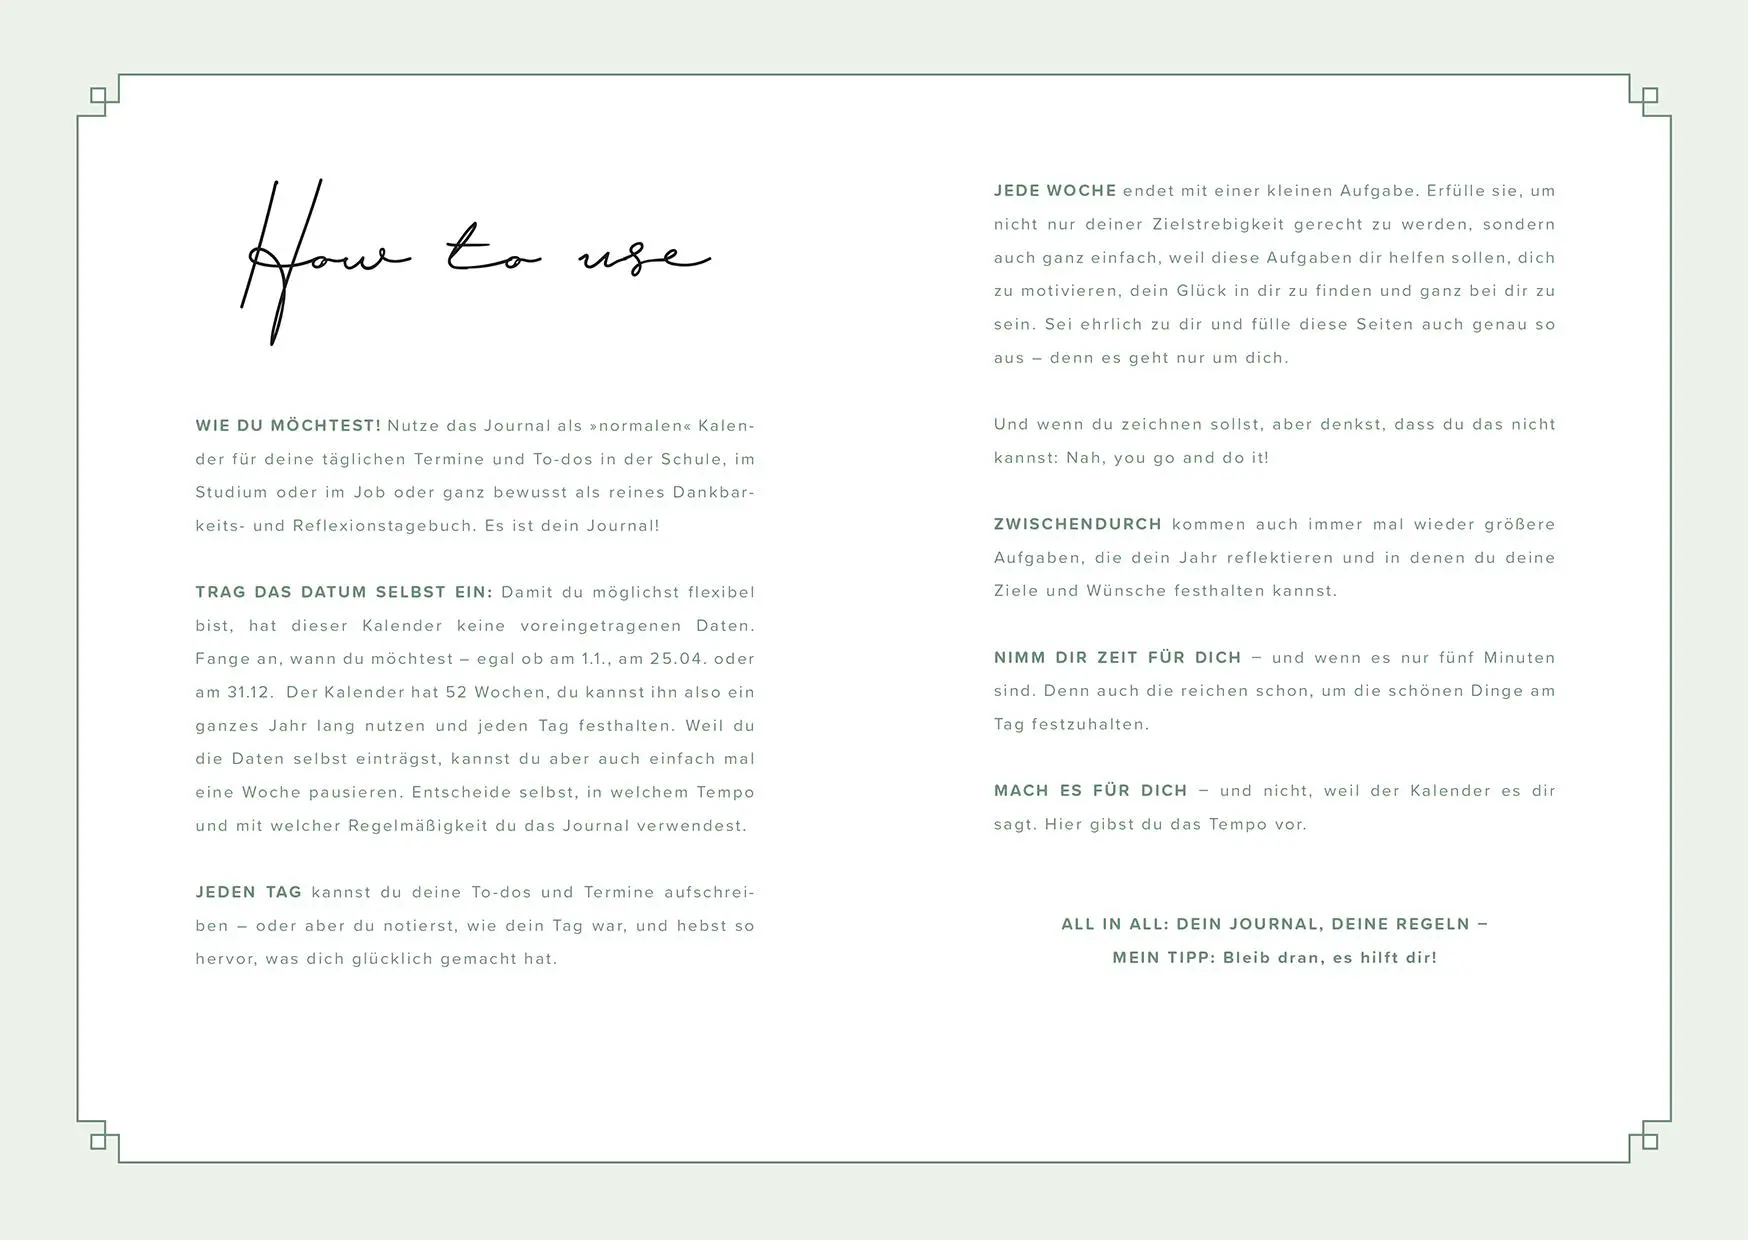 How to use
WIE DU MÖCHTEST! Nutze das Journal als »normalen« Kalen-
der für deine täglichen Termine und To-dos in der Schule, im
Studium oder im Job oder ganz bewusst als reines Dankbar-
keits- und Reflexionstagebuch. Es ist dein Journal!
TRAG DAS DATUM SELBST EIN: Damit du möglichst flexibel
bist, hat dieser Kalender keine voreingetragenen Daten.
Fange an, wann du möchtest – egal ob am 1.1., am 25.04. oder
am 31.12. Der Kalender hat 52 Wochen, du kannst ihn also ein
ganzes Jahr lang nutzen und jeden Tag festhalten. Weil du
die Daten selbst einträgst, kannst du aber auch einfach mal
eine Woche pausieren. Entscheide selbst, in welchem Tempo
und mit welcher Regelmäßigkeit du das Journal verwendest.
JEDEN TAG kannst du deine To-dos und Termine aufschrei-
ben – oder aber du notierst, wie dein Tag war, und hebst so
hervor, was dich glücklich gemacht hat.
JEDE WOCHE endet mit einer kleinen Aufgabe. Erfülle sie, um
nicht nur deiner Zielstrebigkeit gerecht zu werden, sondern
auch ganz einfach, weil diese Aufgaben dir helfen sollen, dich
zu motivieren, dein Glück in dir zu finden und ganz bei dir zu
sein. Sei ehrlich zu dir und fülle diese Seiten auch genau so
aus – denn es geht nur um dich.
Und wenn du zeichnen sollst, aber denkst, dass du das nicht
kannst: Nah, you go and do it!
ZWISCHENDURCH kommen auch immer mal wieder größere
Aufgaben, die dein Jahr reflektieren und in denen du deine
Ziele und Wünsche festhalten kannst.
NIMM DIR ZEIT FÜR DICH – und wenn es nur fünf Minuten
sind. Denn auch die reichen schon, um die schönen Dinge am
Tag festzuhalten.
MACH ES FÜR DICH – und nicht, weil der Kalender es dir
sagt. Hier gibst du das Tempo vor.
ALL IN ALL: DEIN JOURNAL, DEINE REGELN –
MEIN TIPP: Bleib dran, es hilft dir!